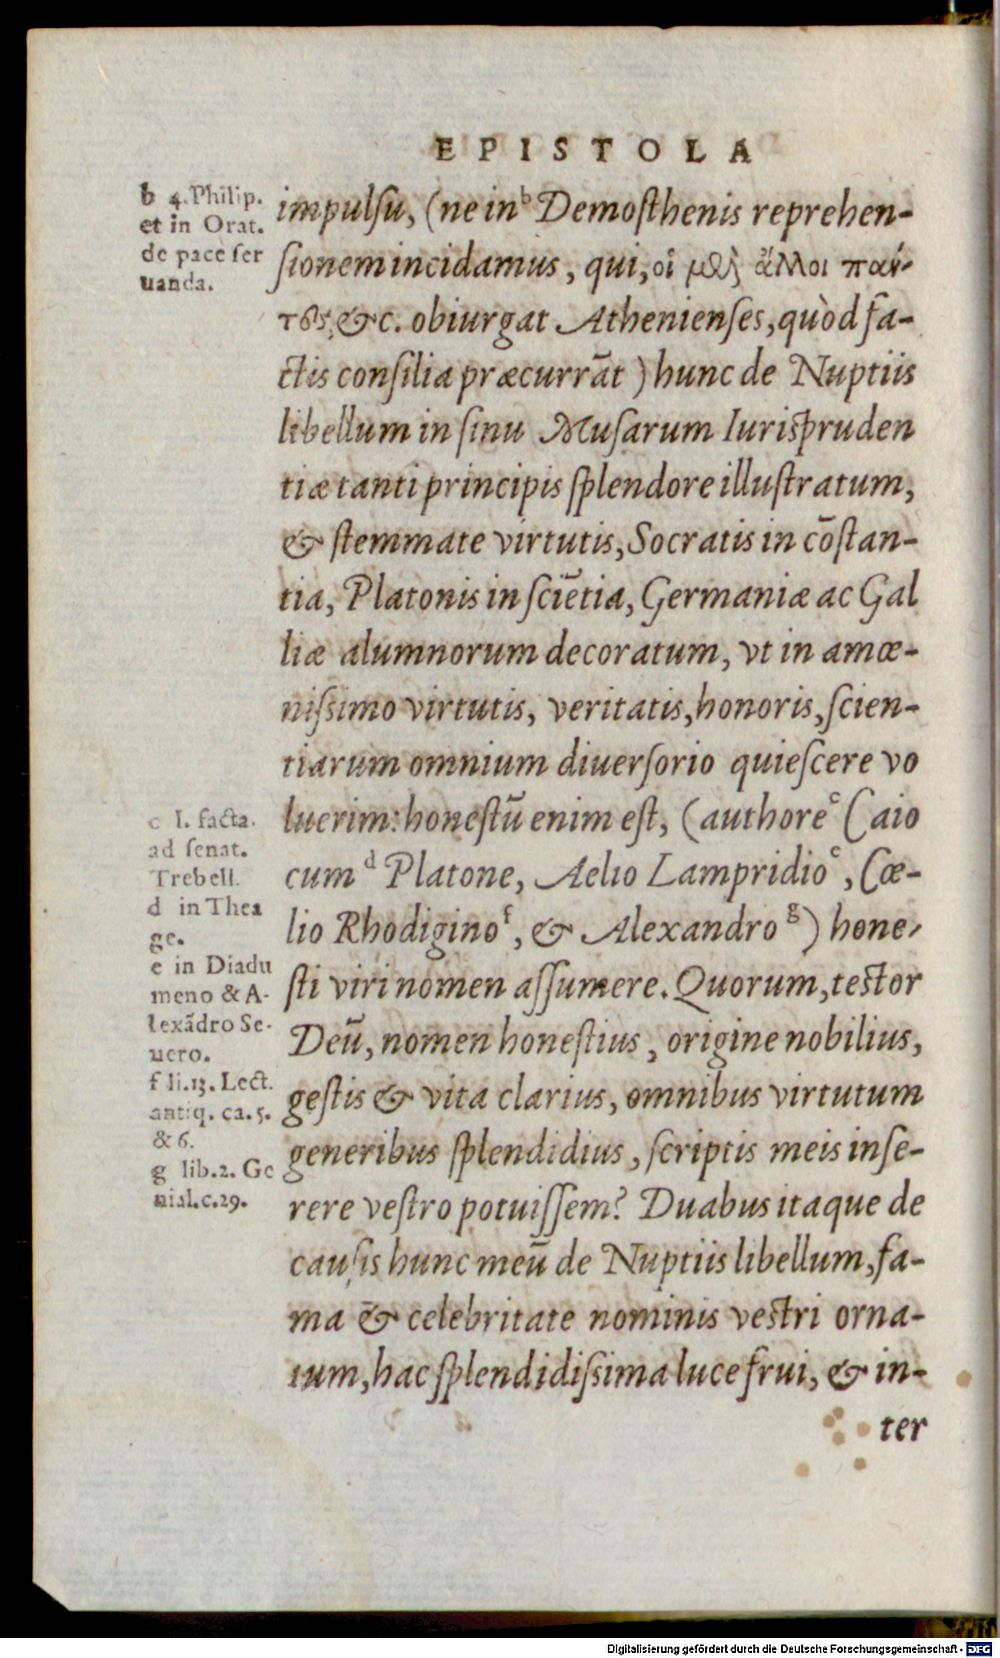 EPISTOLA
b 4. Philip.
et in Orat.
de pace ser
uanda.
impulsu, (ne in b Demosthenis reprehen-
sionem incidamus, qui, οἱ μὲν ἄλλοι πάν-
τες &c. obiurgat Athenienses, quòd fa-
ctis consilia præcurrāt) hunc de Nuptiis
libellum in sinu Musarum Iurispruden
tiæ tanti principis splendore illustratum,
& stemmate virtutis, Socratis in cōstan-
tia, Platonis in sciētia, Germaniæ ac Gal
liæ alumnorum decoratum, vt in amœ-
nissimo virtutis, veritatis, honoris, scien-
tiarum omnium diuersorio quiescere vo
luerim: honestū enim est, (authore c Caio
cum d Platone, Aelio Lampridio e, Cœ-
lio Rhodigino f, & Alexandro g) hone-
sti viri nomen assumere. Quorum, testor
Deū, nomen honestius, origine nobilius,
gestis & vita clarius, omnibus virtutum
generibus splendidius, scriptis meis inse-
rere vestro potuissem? Duabus itaque de
causis hunc meū de Nuptiis libellum, fa-
ma & celebritate nominis vestri orna-
tum, hac splendidissima luce frui, & in-
ter
c I. facta.
ad senat.
Trebell.
d in Thea
ge.
e in Diadu
meno & A-
lexādro Se-
uero.
f li.13. Lect.
antiq. ca. 5.
& 6.
g lib.2. Ge
nial.c.29.
Digitalisierung gefördert durch die Deutsche Forschungsgemeinschaft - DFG